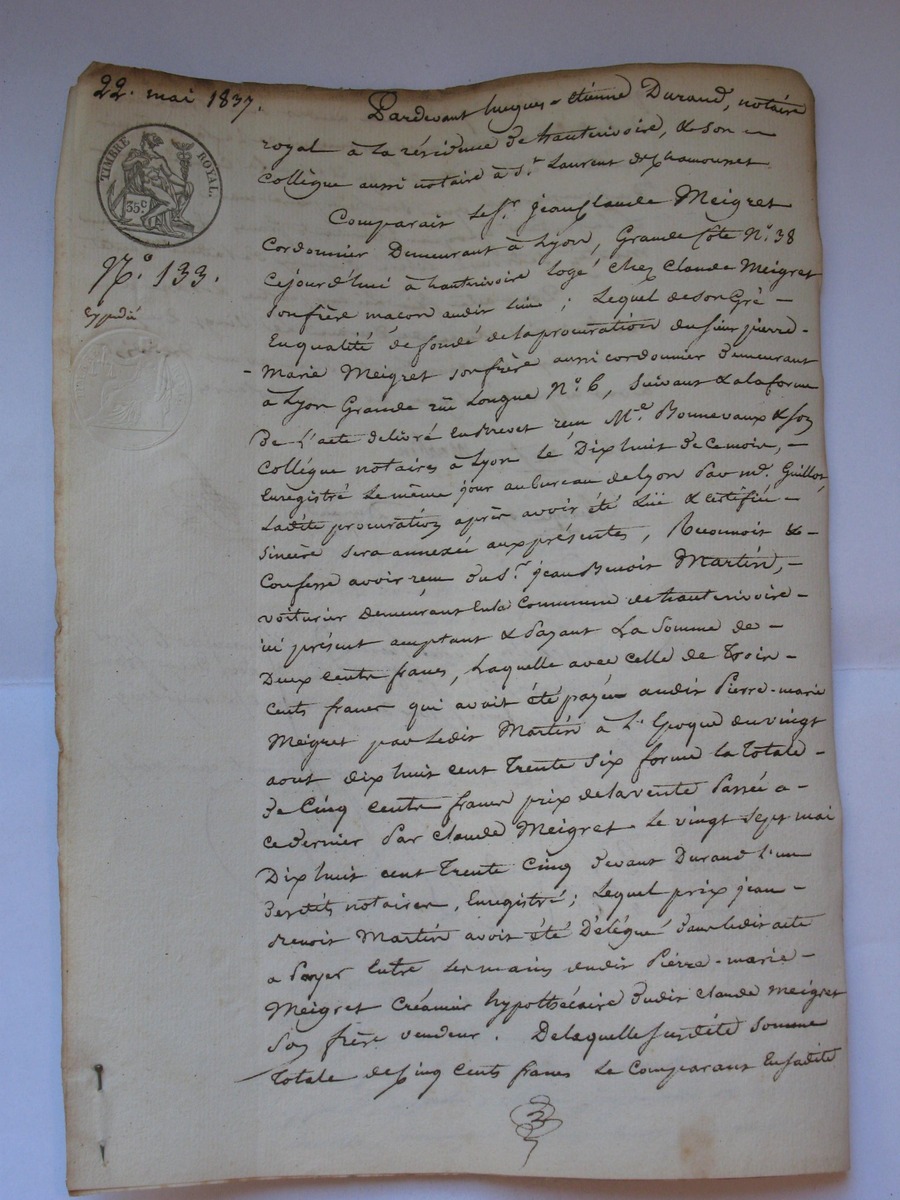 22. mai 1837.
TIMBRE ROYAL.
35 c.
N.° 133.
Expédié
Pardevant hugues-étienne Durand, notaire
royal à la résidence de hauterivoire, & son
collègue aussi notaire à St. Laurent de Chamousset
Comparait le Sr. jean Claude Meigret
Cordonnier Demeurant à Lyon, Grande Côte N.° 38
Cejourd'hui à hauterivoire logé chez Claude Meigret
Son frère maçon audit lieu ; Lequel de son Gré
En qualité de fondé de la procuration du sieur pierre-
Marie Meigret son frère aussi cordonnier demeurant
à Lyon Grande rue Longue N.° 6, Suivant & a la forme
De L'acte délivré en Brevet reçu Me. Bonnevaux & son
Collègue notaires à Lyon le Dix huit de ce mois, -
Enregistré Le même jour au bureau de Lyon Par mr. Guillot,
Ladite procuration après avoir été Lüe & certifiée -
Sincère sera annexée aux présentes, Reconnoit & -
Confesse avoir reçu du Sr. jean Benoit Martin, -
voiturier Demeurant En la Commune de hauterivoire -
ici présent acceptant & Payant La Somme de -
Deux cents francs, Laquelle avec celle de Trois -
Cents francs qui avait été payée audit Pierre-marie
Meigret par Ledit Martin à L'Epoque du vingt
aout dix huit cent Trente Six forme la Totale -
De Cinq cents francs prix de la vente Passée a -
ce dernier Par Claude Meigret Le vingt Sept mai
Dix huit cent Trente Cinq devant Durand L'un
desdits notaires, Enregistré ; Lequel prix jean-
Benoit Martin avoit été Délégué dans ledit acte
a Payer Entre Les mains dudit Pierre-marie -
Meigret Créancier hypothécaire dudit Claude Meigret
Son frère vendeur. De laquelle Susdite Somme
Totale de Cinq cents francs Le Comparant En sadite